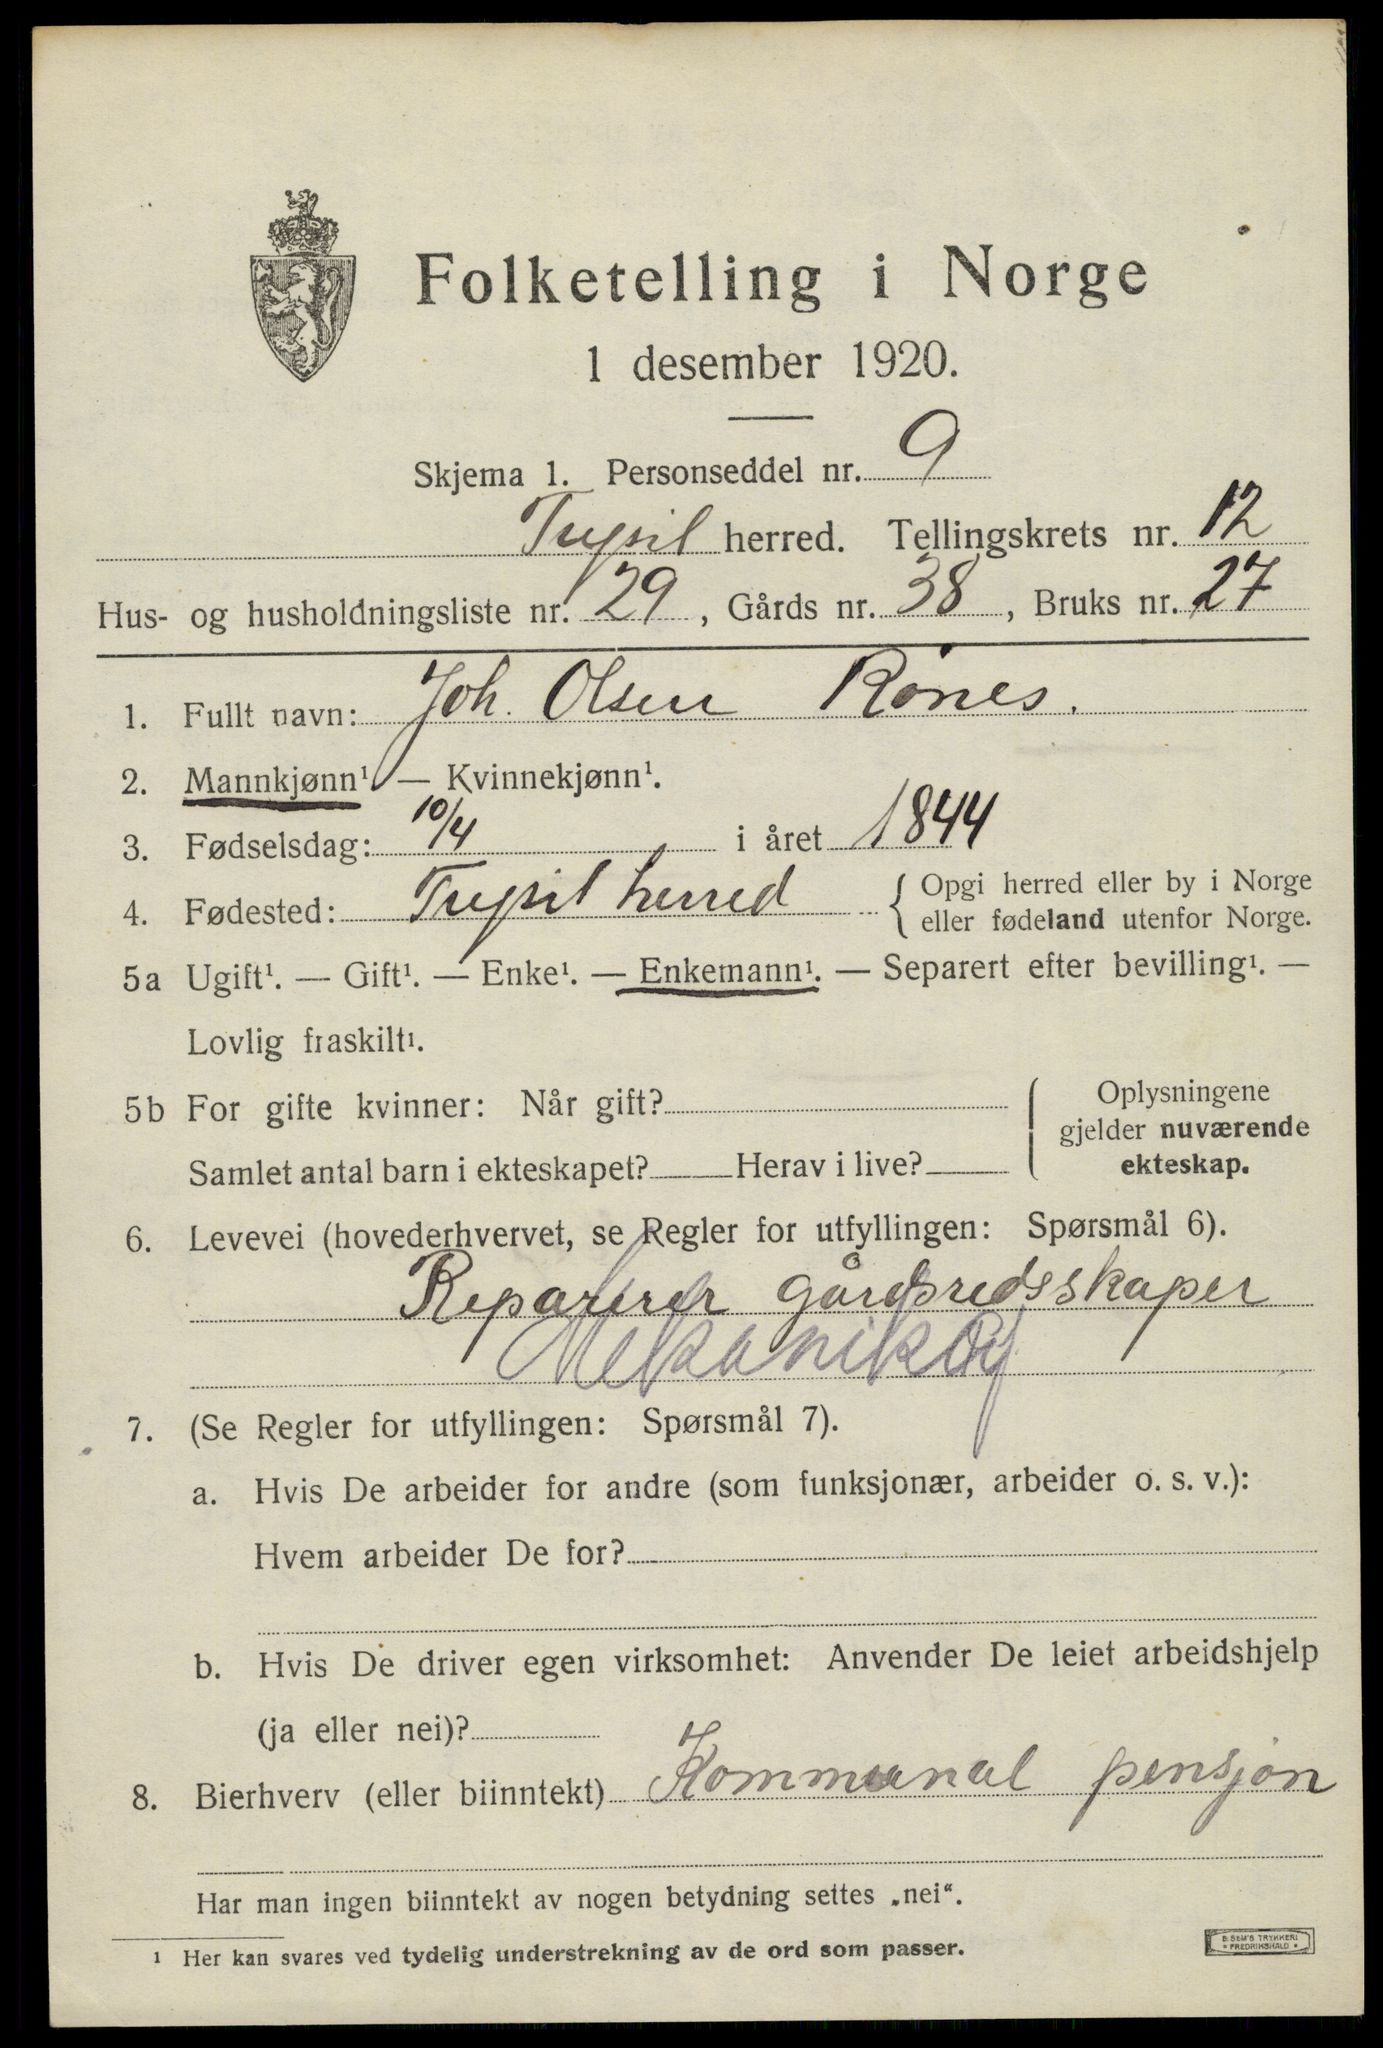 Folketelling i Norge
1 desember 1920.
Skjema 1. Personseddel nr. 9
Trysil herred. Tellingskrets nr. 12
Hus- og husholdningsliste nr. 29, Gårds nr. 38, Bruks nr. 27
1. Fullt navn: Joh. Olsen Rønes.
2. Mannkjønn¹ — Kvinnekjønn¹.
3. Fødselsdag: 10/4 i året 1844
4. Fødested: Trysil herred { Opgi herred eller by i Norge
eller fødeland utenfor Norge.
5a Ugift¹. — Gift¹. — Enke¹. — Enkemann¹. — Separert efter bevilling¹. —
Lovlig fraskilt¹.
5b For gifte kvinner: Når gift? { Oplysningene
gjelder nuværende
Samlet antal barn i ekteskapet? Herav i live? ekteskap.
6. Levevei (hovederhvervet, se Regler for utfyllingen: Spørsmål 6).
Reparerer gårdsredsskaper
7. (Se Regler for utfyllingen: Spørsmål 7).
a. Hvis De arbeider for andre (som funksjonær, arbeider o. s. v.):
Hvem arbeider De for?
b. Hvis De driver egen virksomhet: Anvender De leiet arbeidshjelp
(ja eller nei)?
8. Bierhverv (eller biinntekt) Kommunal pensjon
Har man ingen biinntekt av nogen betydning settes „nei“.
¹ Her kan svares ved tydelig understrekning av de ord som passer.
E. SEM'S TRYKKERI
FREDRIKSHALD